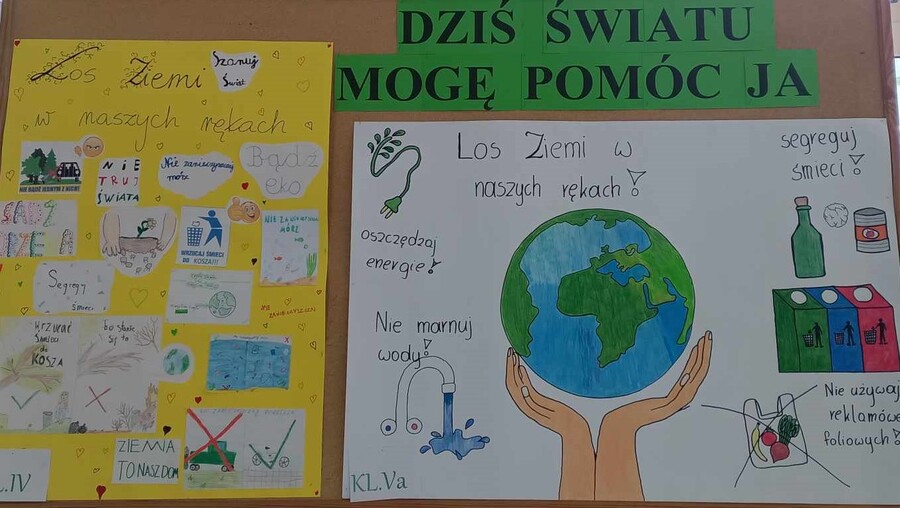 DZIŚ ŚWIATU
MOGĘ POMÓC JA
Los Ziemi
w naszych rękach
Szanuj
Świat
NIE
TRUJ
ŚWIATA
Nie zanieczyszczaj
mórz
Bądź
eko
SADŹ
WRZUCAJ ŚMIECI
DO KOSZA!!!
Segreguj
śmieci
Wrzucać
śmieci
do
KOSZA
bo stanie
się to
ZIEMIA
TO NASZ DOM
KL.IV
Los Ziemi w
naszych rękach!
segreguj
śmieci!
oszczędzaj
energię!
Nie marnuj
wody!
Nie używaj
reklamówek
foliowych!
KL.Va